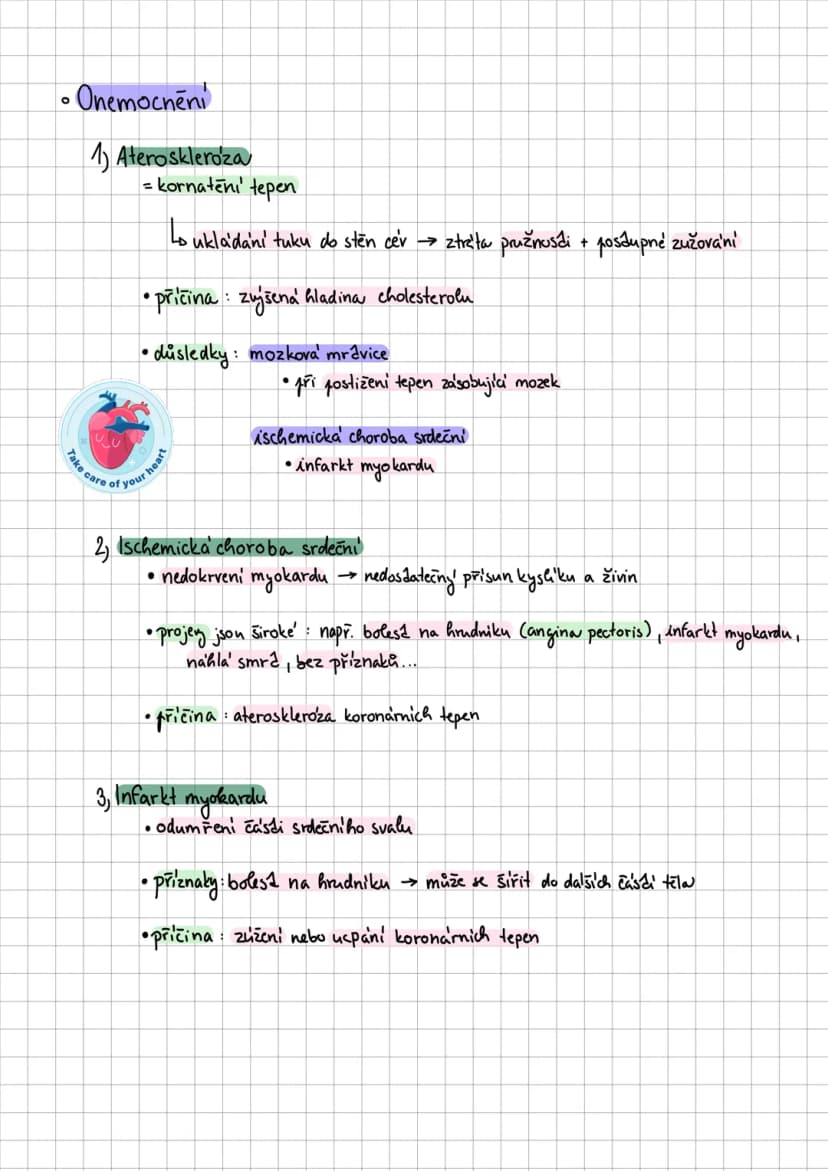 • Onemocnění
1) Ateroskleróza
= kornatění tepen
↳ ukládání tuku do stěn cév → ztráta pružnosti + postupné zužování
• příčina : zvýšená hladina cholesterolu
• důsledky : mozková mrtvice
• při postižení tepen zásobující mozek
ischemická choroba srdeční
• infarkt myokardu
Take care of your heart
2) Ischemická choroba srdeční
• nedokrvení myokardu → nedostatečný přísun kyslíku a živin
• projevy jsou široké : např. bolest na hrudníku (angina pectoris), infarkt myokardu,
náhlá smrt, bez příznaků...
• příčina : ateroskleróza koronárních tepen
3) Infarkt myokardu
• odumření části srdečního svalu
• příznaky : bolest na hrudníku → může se šířit do dalších částí těla
• příčina : zúžení nebo ucpání koronárních tepen